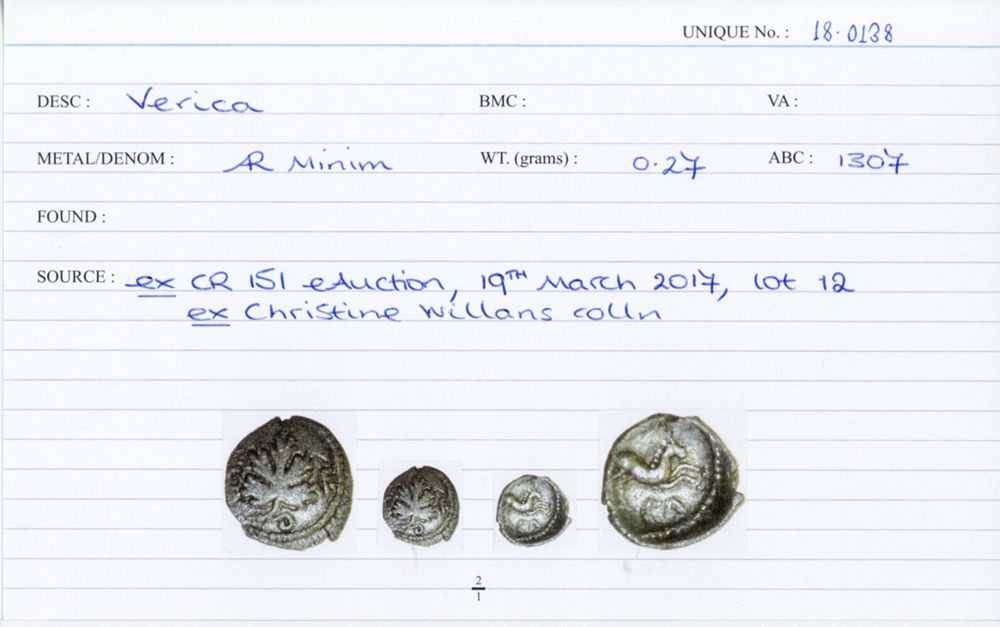 UNIQUE No. : 18·0138
DESC : Verica BMC : VA :
METAL/DENOM : AR Minim WT. (grams) : 0·27 ABC : 1307
FOUND :
SOURCE : ex CR 151 eAuction, 19TH March 2017, lot 12
ex Christine Willans colln
2
1